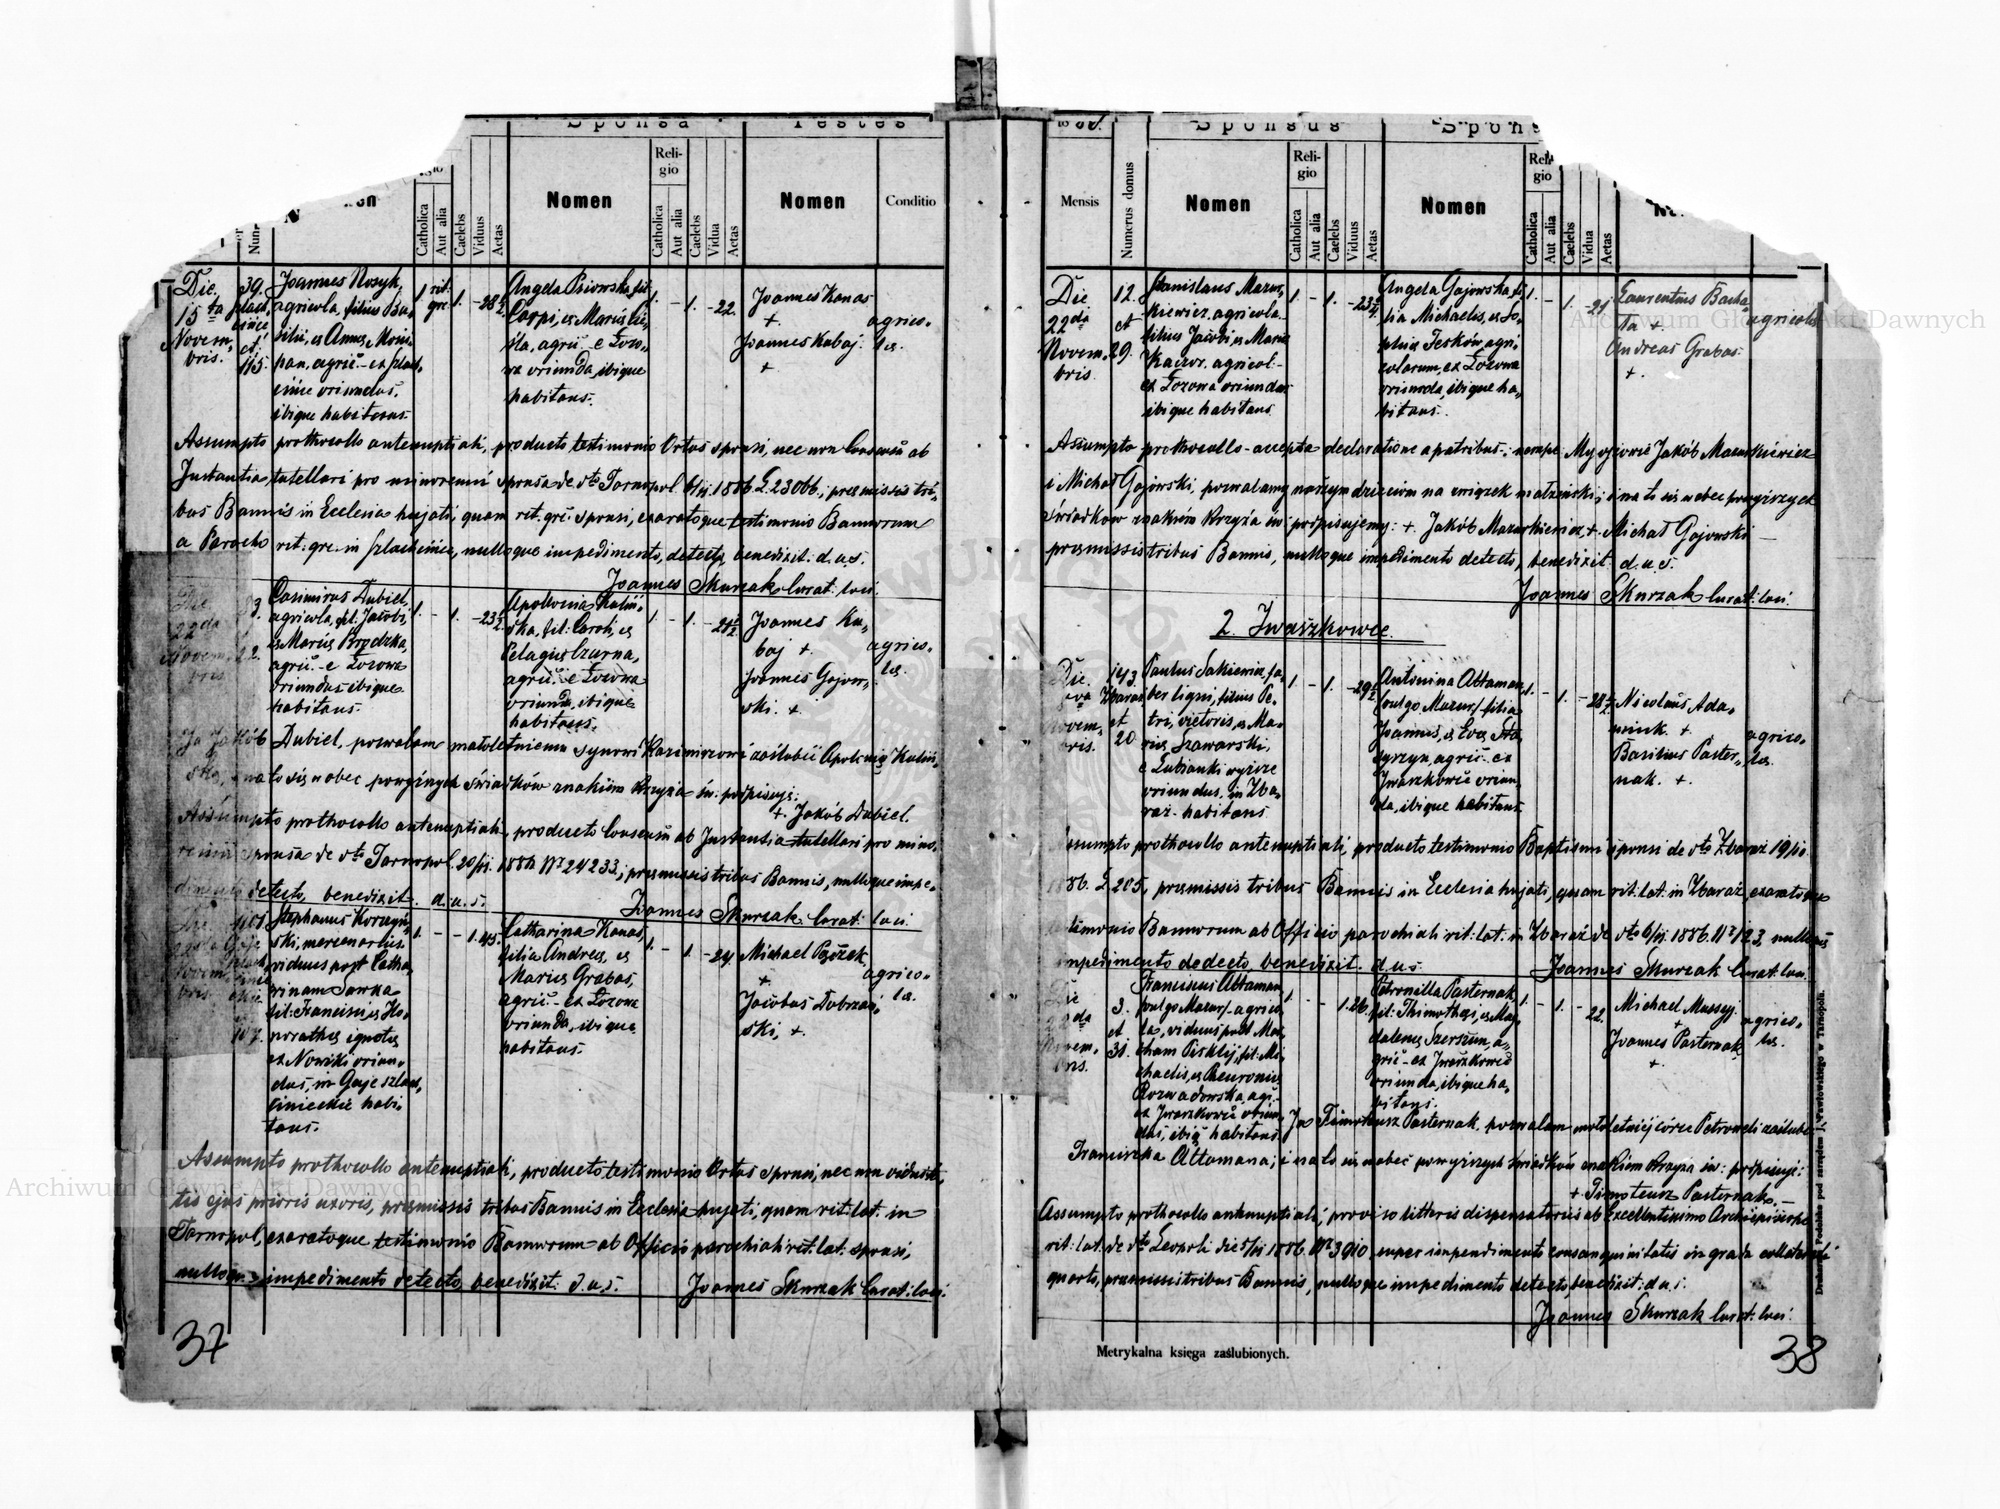 Sponsa Testes
Nomen Religio Nomen Conditio
Catholica Aut alia Caelebs Viduus Aetas Catholica Aut alia Caelebs Vidua Aetas
Die 15ta Novembris.
39. et 115.
Joannes Nosyk,
agricola, filius Ba-
silii, et Annae
agric.
oriundus,
ibique habitans.
1. rit. gr. 1. - 28½
Angela fil.
et Mariae
agric. e Łozo-
wa oriunda, ibique
habitans.
1. - 1. - 22.
Joannes Kanas
+
Joannes Kubaj.
+
agrico-
lae.
Assumpto prothocollo antenuptiali, producto testimonio Ortus sponsi, nec non Consensu ab
Instantia tutellari pro minorenni sponsa de dto Tarnopol 6/11 1886 L. 23066., praemissis tri-
bus Bannis in Ecclesia hujati, quam rit. gr. sponsi, exaratoque testimonio Bannorum
a Parocho rit: gr. in nulloque impedimento detecto, benedixit: d.u.s.
Joannes Skurzak Curat: loci.
22da Novembris
Casimirus Dubiel,
agricola, fil. Jacobi,
et Mariae Brodzka,
agric. e Łozowa
oriundus ibique
habitans.
1. - 1. - 23½
Apollonia Kuliń-
ska, fil: Caroli, et
Pelagiae Czarna,
agric. e Łozowa
oriunda, ibique
habitans.
1. - 1. - 21½
Joannes Ku-
baj +.
Joannes Gajow-
ski. +
agrico-
lae.
Ja Jakób Dubiel, pozwalam małoletniemu synowi Kazimierzowi zaślubić Apolonię Kuliń-
ską, i na to się wobec powyższych świadków znakiem Krzyża św: podpisuję:
+ Jakób Dubiel.
Assumpto prothocollo antenuptiali, producto Consensu ab Instantia tutellari pro mino-
renni sponsa de dto Tarnopol 20/11. 1886 Nr 24233., praemissis tribus Bannis, nulloque impe-
dimento detecto, benedixit. d.u.s.
Joannes Skurzak Curat: loci
Stephanus Korzyń-
ski, mercenarius
viduus post Catha-
rinam Sawka
fil: Francisci, et Ho-
norathae ignotae
ex Nowiki oriun-
dus, in Gaje szlach-
cinieckie habi-
tans.
107.
1. - - 1. 45.
Catharina Kanas,
filia Andreae, et
Mariae Grabas,
agric. ex Łozowa
oriunda, ibique
habitans.
1. - 1. - 24
Michael
+
Jacobus Dobrzań-
ski, +.
agrico-
lae.
Assumpto prothocollo antenuptiali, producto testimonio Ortus sponsi, nec non viduita-
tis ejus prioris uxoris, praemissis tribus Bannis in Ecclesia hujati, quam rit: lat. in
Tarnopol, exaratoque testimonio Bannorum ab Officio parochiali rit: lat: sponsi,
nulloque impedimento detecto, benedixit. d.u.s. Joannes Skurzak Curat: loci
37
Sponsus Spons
Mensis Numerus domus Nomen Religio Nomen Religio
Catholica Aut alia Caelebs Viduus Aetas Catholica Aut alia Caelebs Vidua Aetas
Die 22da Novembris
12. et 29.
Stanislaus Mazur-
kiewicz, agricola.
filius Jacobi, et Mariae
Kaczor, agricol-
ex Łozowa oriundus
ibique habitans
1. - 1. -
Angela Gajowska, fi-
lia Michaelis, et Jo-
sephae agri-
colarum, ex Łozowa
oriunda, ibique ha-
bitans.
1. - 1. - 21
Laurentius Bacha
ta +.
Andreas Grabas.
+.
agricola
Assumpto prothocollo - accepta declaratione a patribus.: nempe: My ojcowie Jakób Mazurkiewicz
i Michał Gajowski, pozwalamy naszym dzieciom na związek małżeński, i na to się wobec powyższych
świadków znakiem Krzyża św: podpisujemy: + Jakób Mazurkiewicz + Michał Gajowski
praemissis tribus Bannis, nulloque impedimento detecto, benedixit. d.u.s.
Joannes Skurzak Curat: loci.
2. Iwaszkowce.
Die Novembris.
143. Zbaraż et 20
Paulus Sakiewicz, fa-
ber ligni, filius Pe-
tri, vietoris, et Ma-
riae Szawarski,
e Łubianki wyższe
oriundus, in Zba-
raż. habitans
1. - 1. - 29½
Antonina Attaman
(vulgo Mazur) filia
Joannis, et Evae
agric. ex
Iwaszkowce oriun-
da, ibique habitans
1. - 1. -
Nicolaus Ada-
miuk. +
Basilius Paster-
nak. +.
agrico-
lae.
Assumpto prothocollo antenuptiali, producto testimonio Baptismi sponsi de dto Zbaraż 19/10
1886. L 205, praemissis tribus Bannis in Ecclesia hujati, quam rit: lat. in Zbaraż, exaratoque
testimonio Bannorum ab Officio parochiali rit: lat. in Zbaraż de dto 6/11. 1886. Nr 123, nulloque
impedimento dedecto, benedixit. d.u.s. Joannes Skurzak Curat: loci.
3. et 31.
Franciscus Attaman
vulgo Mazur/ agrico-
la, viduus post
fil. Mi-
chaelis, et
Rozwadowska, agr.
ex Iwaszkowce oriun-
dus, ibiq habitans
1. - - 1. 26.
Petronella Pasternak,
fil: Thimothei, et Mag-
dalenae Szerszun, a-
gric- ex Iwaszkowce
oriunda, ibique ha-
bitans.
1. - 1. - 22.
Michael
+
Joannes Pasternak
+.
agrico-
lae.
Ja Timoteusz Pasternak, pozwalam małoletniej córce Petroneli zaślubić
Franciszka Attamana; i na to się wobec powyższych świadków znakiem Krzyża św: podpisuję:
+ Timoteusz Pasternak. -
Assumpto prothocollo antenuptiali, proviso litteris dispensatoriis ab Excellentissimo Archiepiscopo
rit: lat. de dto Leopoli die 5/11 1886. Nr 3910 super impendimento consanguinitatis in gradu collaterali
quarto, praemissis tribus Bannis, nulloque impedimento detecto, benedixit: d.u.s.
Joannes Skurzak Curat: loci.
Metrykalna księga zaślubionych.
38
Archiwum Główne Akt Dawnych
Archiwum Główne Akt Dawnych